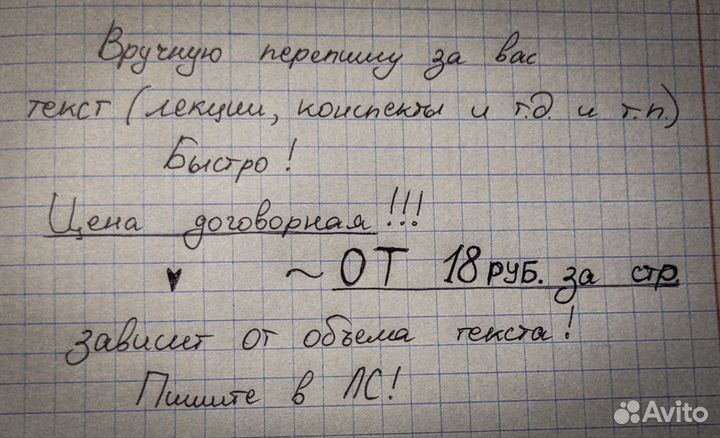 Вручную перепишу за вас
текст (лекции, конспекты и т.д. и т.п.)
Быстро!
Цена договорная!!!
~ ОТ 18 РУБ. за стр.
зависит от объема текста!
Пишите в ЛС!
Avito